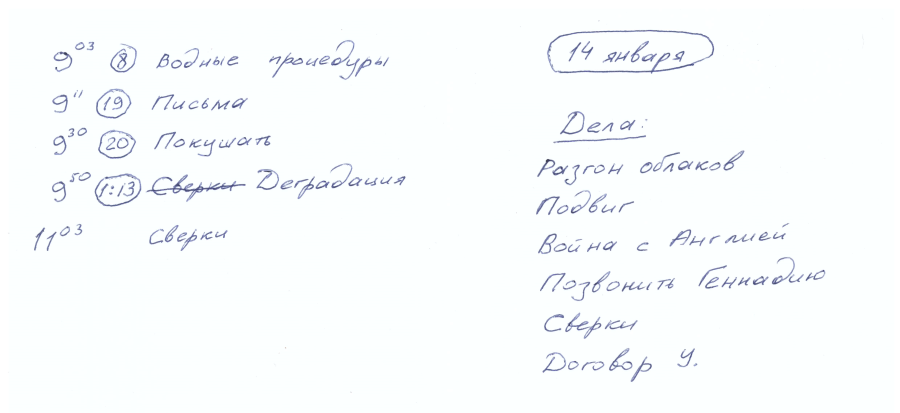 9⁰³ 8 Водные процедуры
9¹¹ 19 Письма
9³⁰ 20 Покушать
9⁵⁰ 1:13 Сверки Деградация
11⁰³ Сверки
14 января
Дела:
Разгон облаков
Подвиг
Война с Англией
Позвонить Геннадию
Сверки
Договор У.